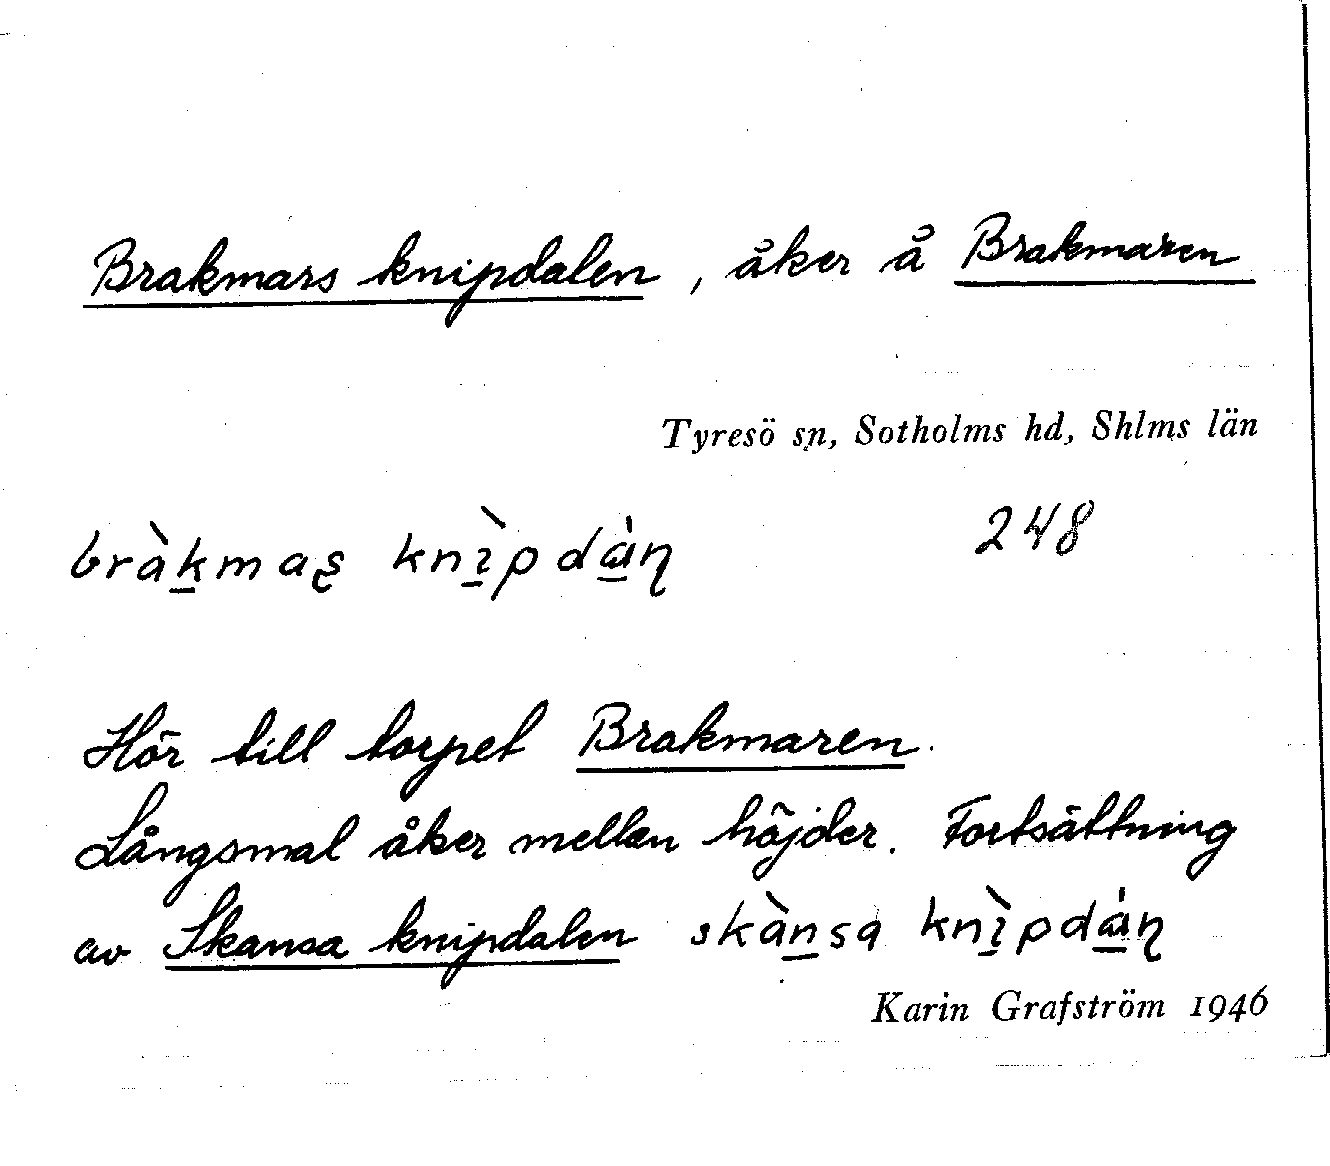 Brakmars knipdalen, åker å Brakmaren
Tyresö sn, Sotholms hd, Shlms län
bràk̲maʂ knì̲pdá̲ɳ 248
Hör till torpet Brakmaren.
Långsmal åker mellan höjder. Fortsättning
av Skansa knipdalen skàn̲sa knì̲pdá̲ɳ
Karin Grafström 1946